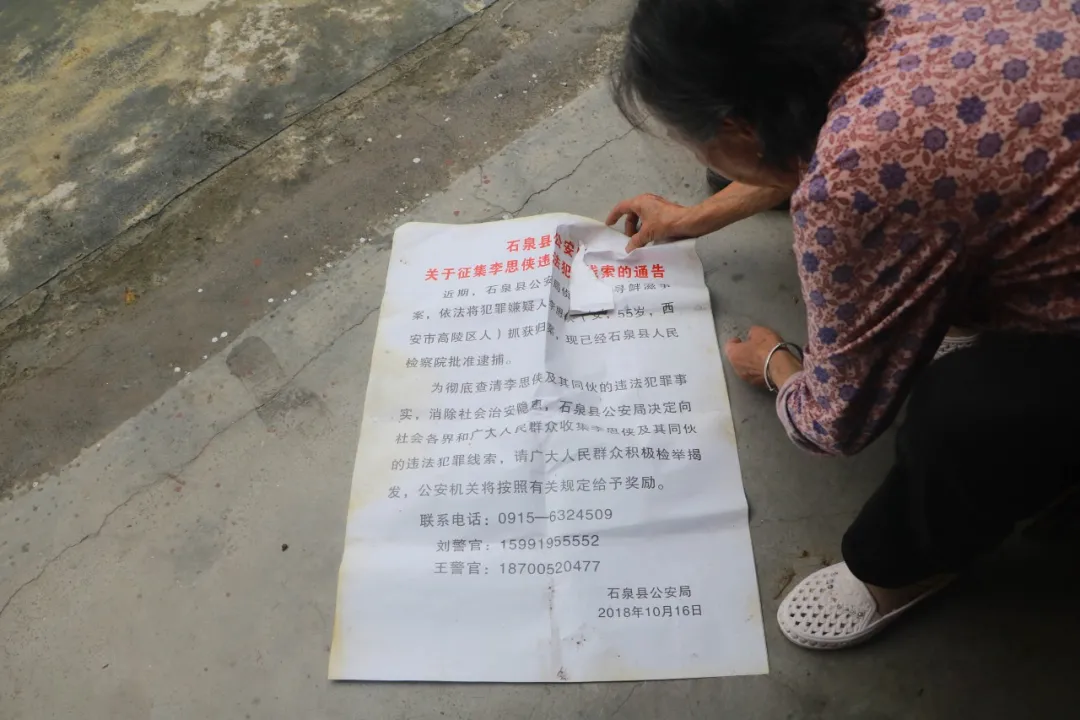 石泉县公安
关于征集李思侠违法犯 线索的通告
近期，石泉县公安局 寻衅滋事
案，依法将犯罪嫌疑人李思侠（女，55岁，西
安市高陵区人）抓获归案，现已经石泉县人民
检察院批准逮捕。
为彻底查清李思侠及其同伙的违法犯罪事
实，消除社会治安隐患，石泉县公安局决定向
社会各界和广大人民群众收集李思侠及其同伙
的违法犯罪线索，请广大人民群众积极检举揭
发，公安机关将按照有关规定给予奖励。
联系电话：0915—6324509
刘警官：15991955552
王警官：18700520477
石泉县公安局
2018年10月16日